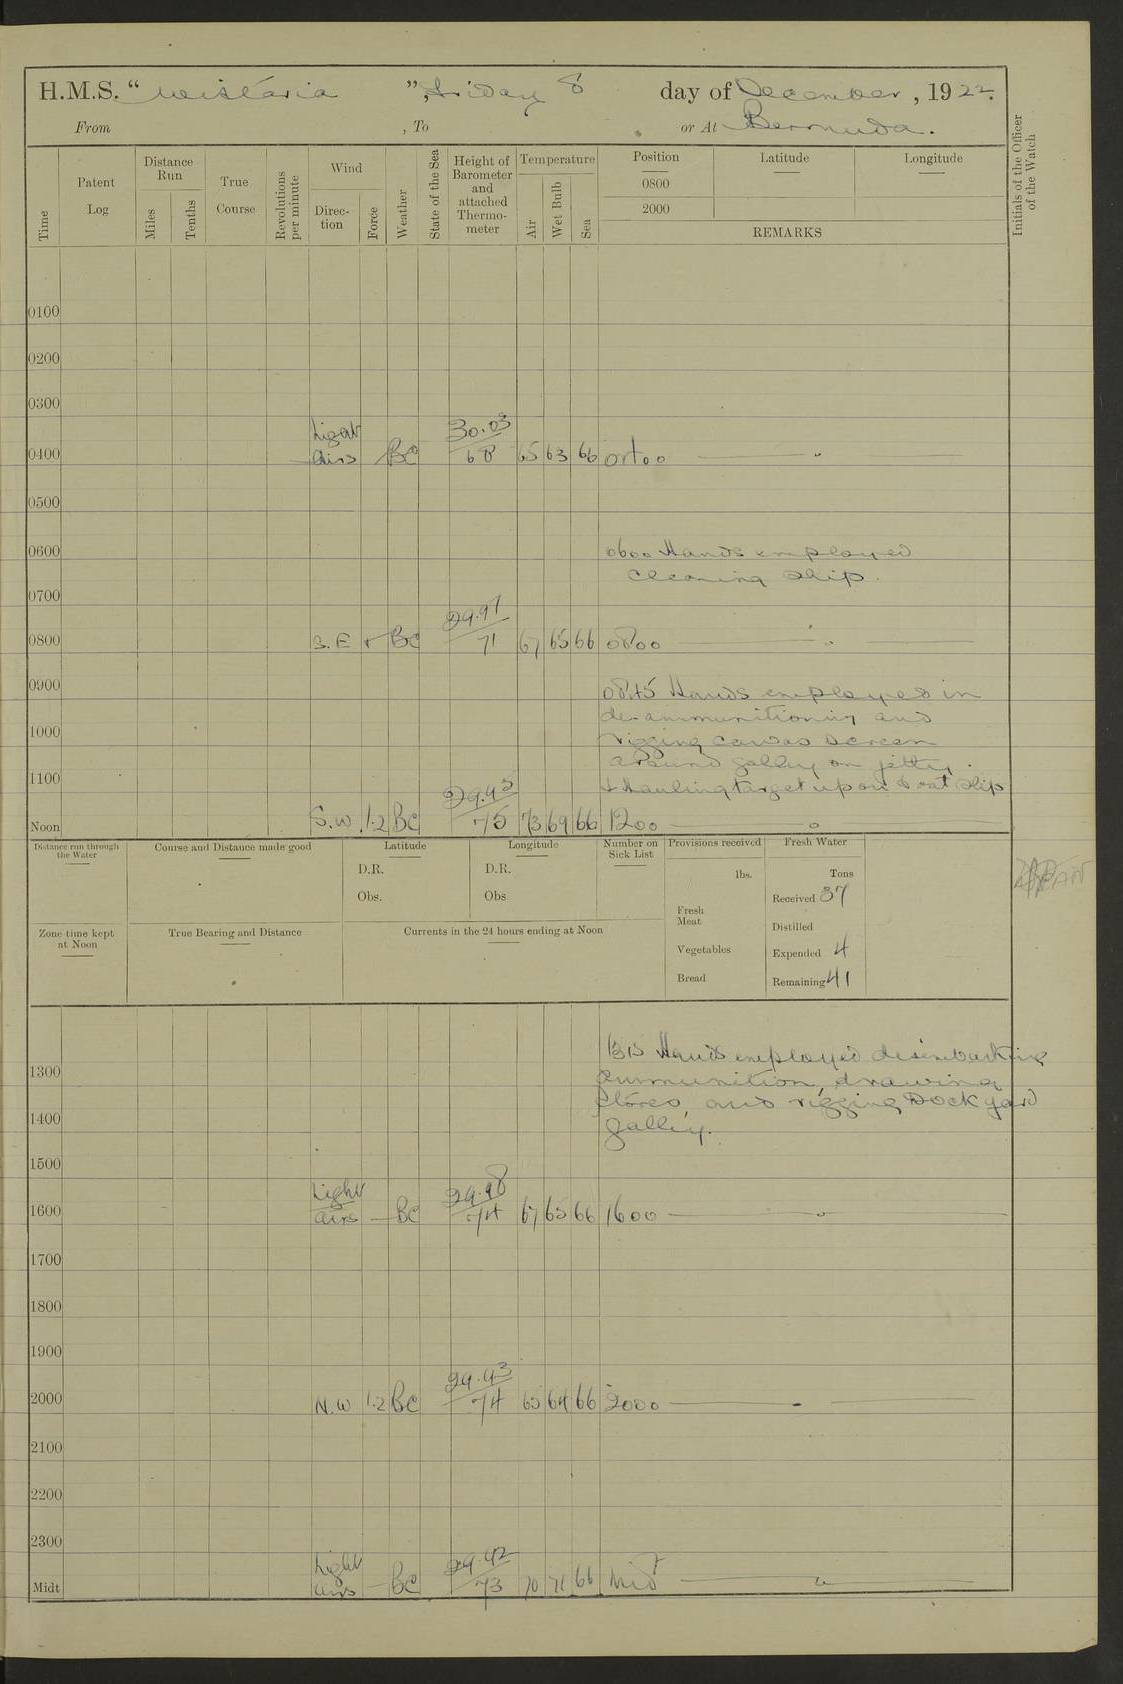 H.M.S. "Wistaria", Friday 8 day of December, 1922.
From , To or At Bermuda.
Time
Patent Log
Distance Run
Miles
Tenths
True Course
Revolutions per minute
Wind
Direction
Force
Weather
State of the Sea
Height of Barometer and attached Thermometer
Temperature
Air
Wet Bulb
Sea
Position Latitude Longitude
0800
2000
REMARKS
Initials of the Officer of the Watch
0100
0200
0300
Light 30.03
0400 airs BC 68 65 63 66 0400
0500
0600 0600 Hands employed
cleaning ship.
0700
29.97
0800 S.E BC 71 67 65 66 0800
0900 0845 Hands employed in
de-ammunitioning and
1000 rigging canvas screen
around galley on jetty.
1100 & Hauling target up on boat slip
29.95
Noon S.W 1.2 BC 75 73 69 66 1200
Distance run through the Water
Course and Distance made good
Latitude
D.R.
Obs.
Longitude
D.R.
Obs
Number on Sick List
Provisions received
lbs.
Fresh Meat
Vegetables
Bread
Fresh Water
Tons
Received 37
Distilled
Expended 4
Remaining 41
Zone time kept at Noon
True Bearing and Distance
Currents in the 24 hours ending at Noon
1315 Hands employed disembarking
1300 ammunition, drawing
stores, and rigging Dockyard
1400 galley.
1500
Light 29.98
1600 airs BC 74 67 65 66 1600
1700
1800
1900
29.93
2000 N.W 1.2 BC 74 65 64 66 2000
2100
2200
2300
Light 29.92
Midt airs BC 73 70 71 66 Midt